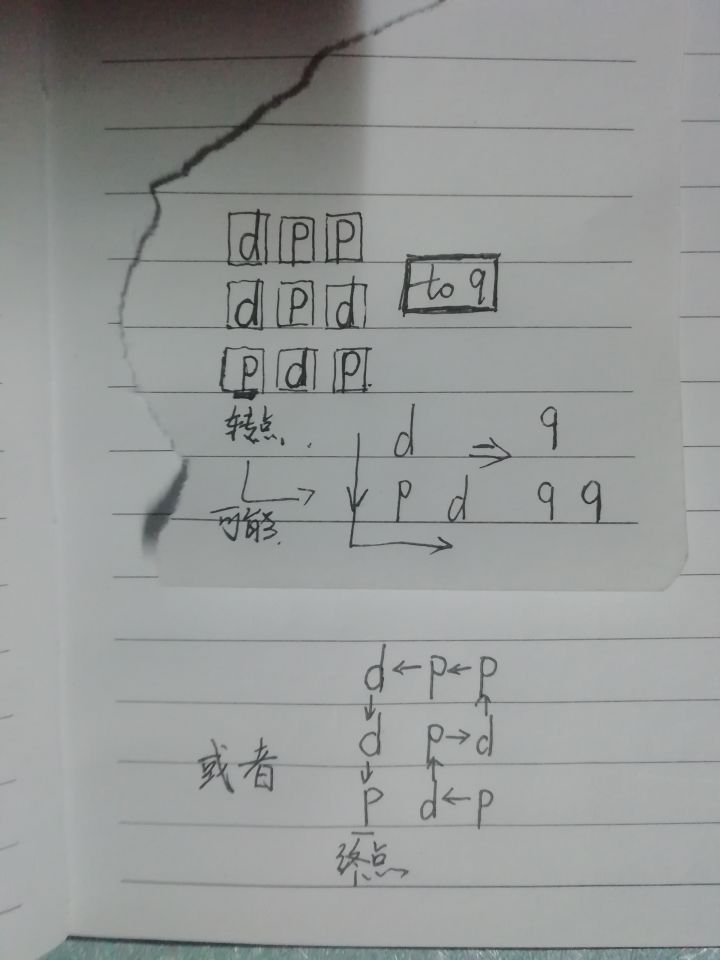 d p p
d p d to q
p d p
转点
d ⇒ q
p d q q
可能
d ← p ← p
d p → d
或者
p d ← p
终点